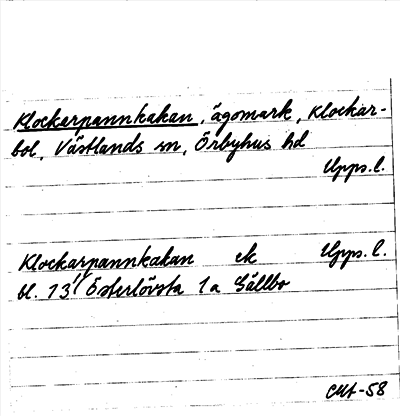 Klockarpannkakan, ägomark, Klockar-
bol, Västlands sn, Örbyhus hd
Upps.l.
Klockarpannkakan ek Upps.l.
bl. 13 Österlövsta 1a Sällbo
-58